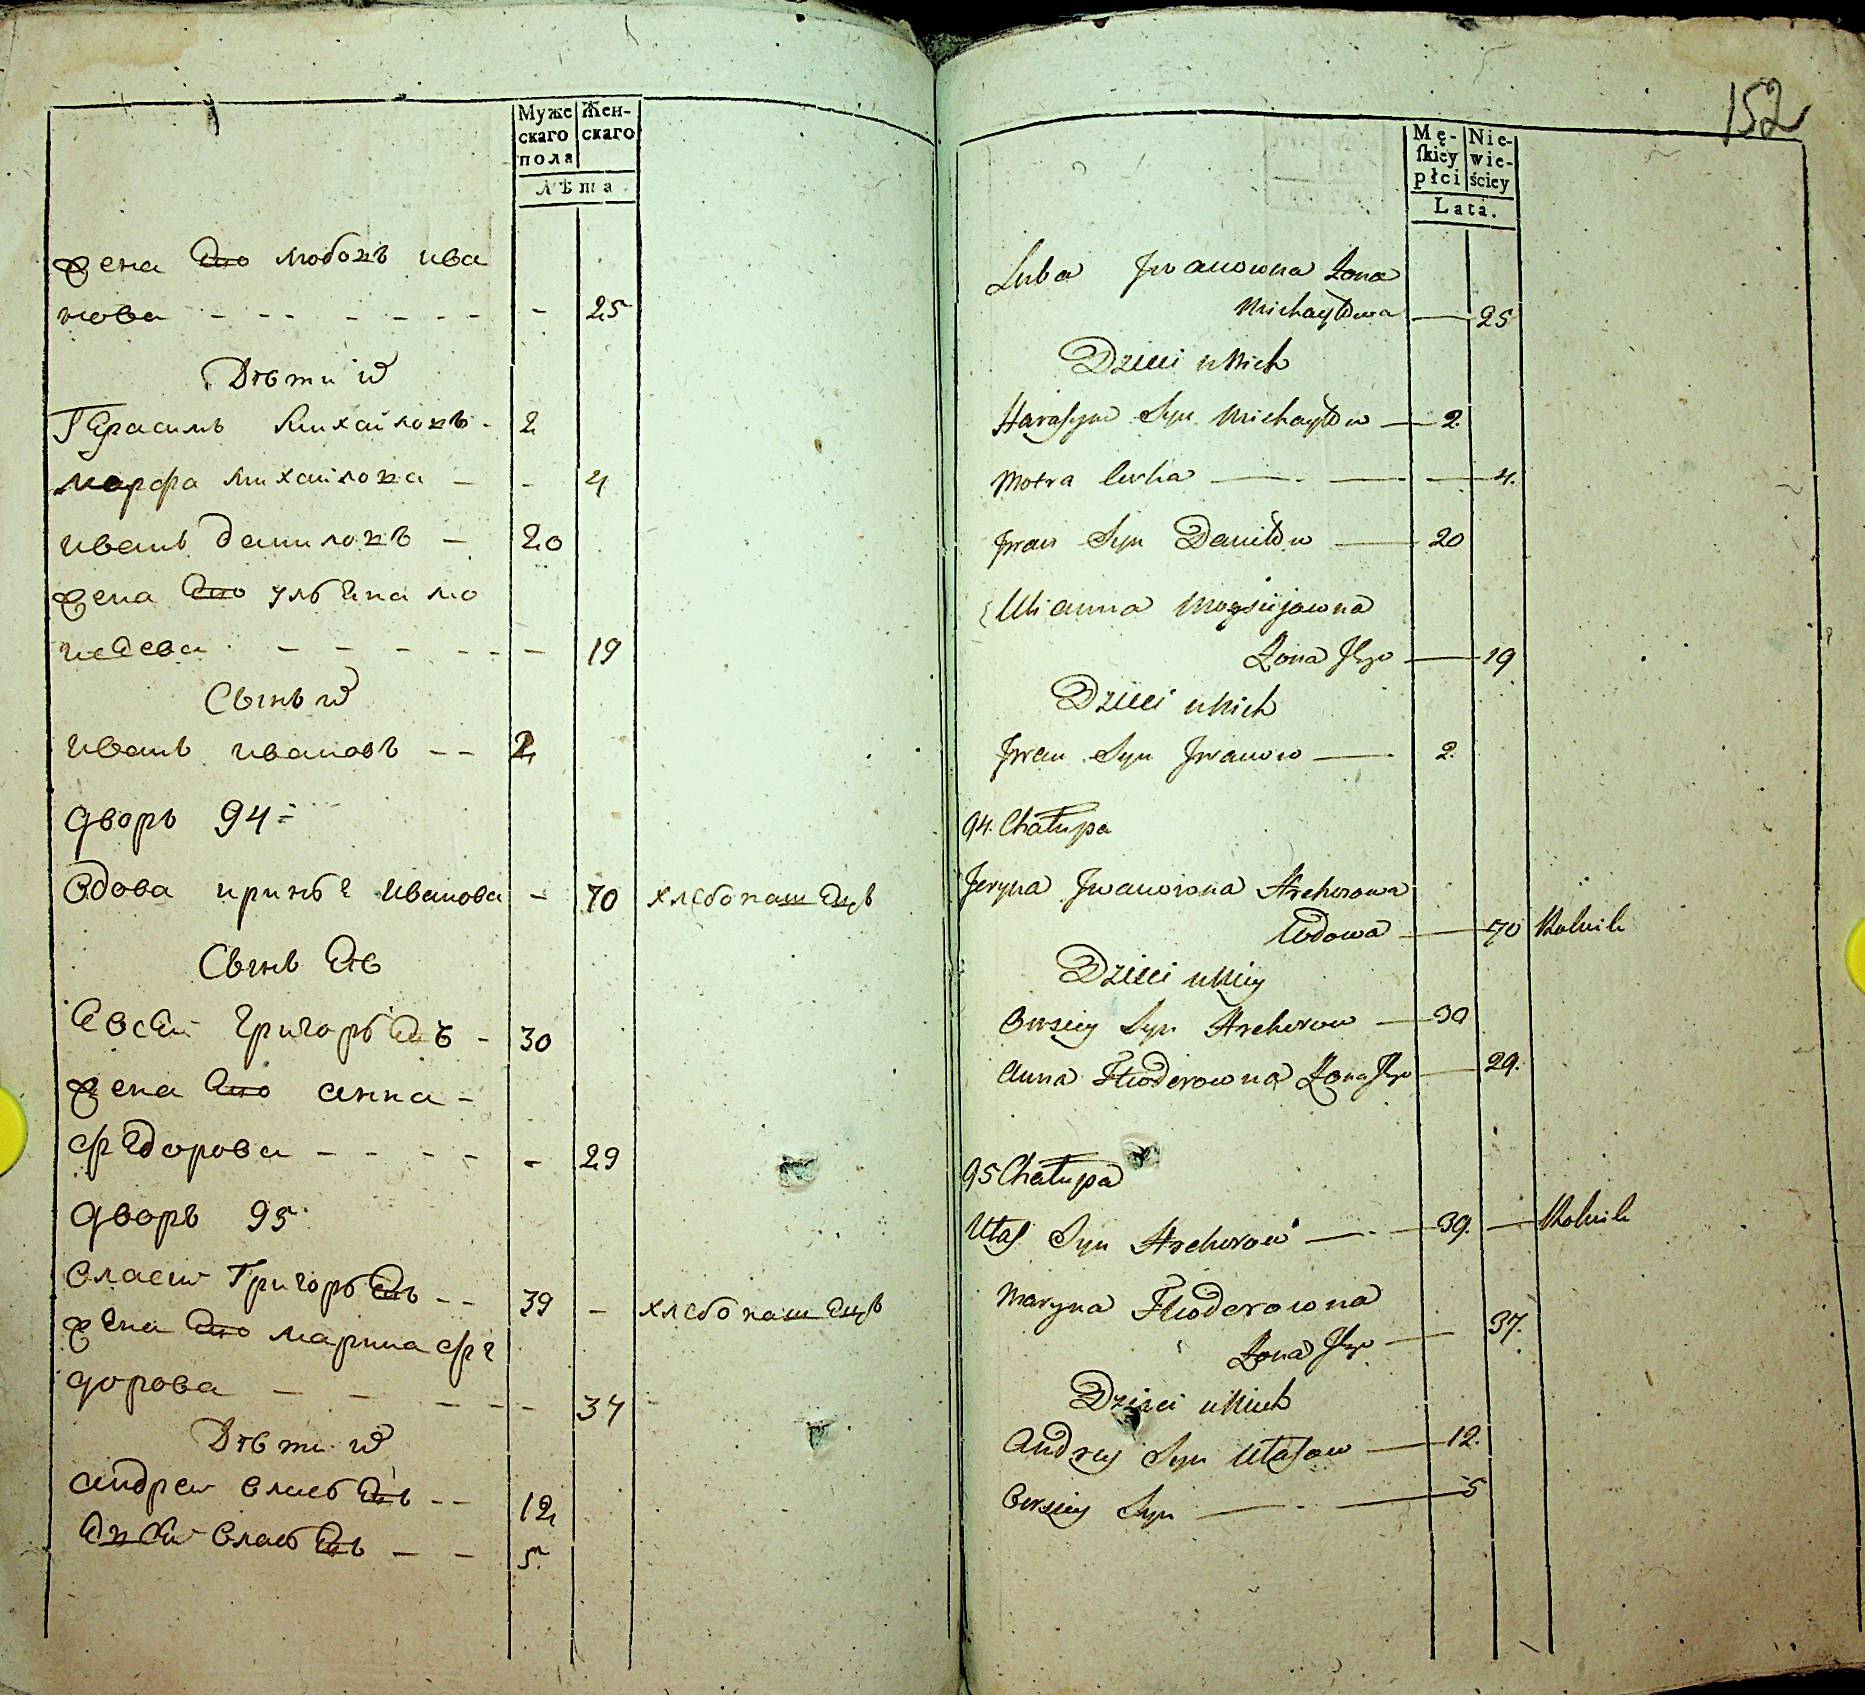 Муже
скаго
пола
Жен-
скаго
Лѣта
жена Его любовь ива
нова - - - - - - - 25
Дѣти их
Герасимъ Михайловъ - 2
марфа михайлова - - 4
иванъ даниловъ - 20
жена Его ульяна мо
исеева - - - - - - 19
Сынъ их
иванъ ивановъ - - 2
дворъ 94
вдова ирина иванова - 70 хлебопашецъ
Сынъ Ее
Евсей григорьевъ - 30
жена Его анна -
федорова - - - - - 29
дворъ 95
власей Григорьевъ - - 39 - хлебопашецъ
жена Его марина фе
дорова - - - - - 37
Дѣти их
андрей власьевъ - - 12
Евсей власьевъ - - 5
152
Mę-
skiey
płci
Nie-
wie-
ściey
Lata.
Luba Jwanowna Zona
Michayłowa — 25
Dzieci u Nich
Harasym Syn Michayłow — 2
Motra Curka — — — 4.
Jwan Syn Daniłow — 20
Ulianna Moysiijowna
Zona Jego — 19
Dzieci u Nich
Jwan Syn Jwanow — 2.
94. Chałupa
Jeryna Jwanowna Hrehorowa
Wdowa — 70 Rolnik
Dzieci u Niey
Owsiey Syn Hrehorow — 30
Anna Fhodorowna Zona Jego — 29.
95 Chałupa
Ułas Syn Hrehorow — - — 39. — Rolnik
Maryna Fhodorowna
Zona Jego — 37.
Dzieci u Nich
Andrey Syn Ułasow — 12.
Owsiey Syn — - — 5